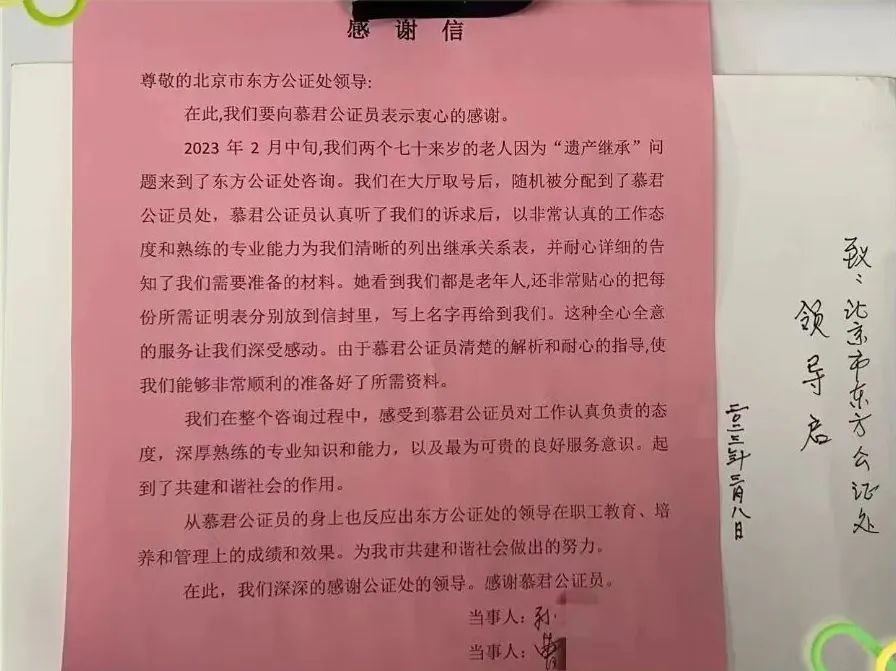 感 谢 信
尊敬的北京市东方公证处领导:
在此,我们要向慕君公证员表示衷心的感谢。
2023 年 2 月中旬,我们两个七十来岁的老人因为“遗产继承”问
题来到了东方公证处咨询。我们在大厅取号后，随机被分配到了慕君
公证员处，慕君公证员认真听了我们的诉求后，以非常认真的工作态
度和熟练的专业能力为我们清晰的列出继承关系表，并耐心详细的告
知了我们需要准备的材料。她看到我们都是老年人,还非常贴心的把每
份所需证明表分别放到信封里，写上名字再给到我们。这种全心全意
的服务让我们深受感动。由于慕君公证员清楚的解析和耐心的指导,使
我们能够非常顺利的准备好了所需资料。
我们在整个咨询过程中，感受到慕君公证员对工作认真负责的态
度，深厚熟练的专业知识和能力，以及最为可贵的良好服务意识。起
到了共建和谐社会的作用。
从慕君公证员的身上也反应出东方公证处的领导在职工教育、培
养和管理上的成绩和效果。为我市共建和谐社会做出的努力。
在此，我们深深的感谢公证处的领导。感谢慕君公证员。
当事人：孙
当事人：
致：北京市东方公证处
领导启
二〇二三年三月八日